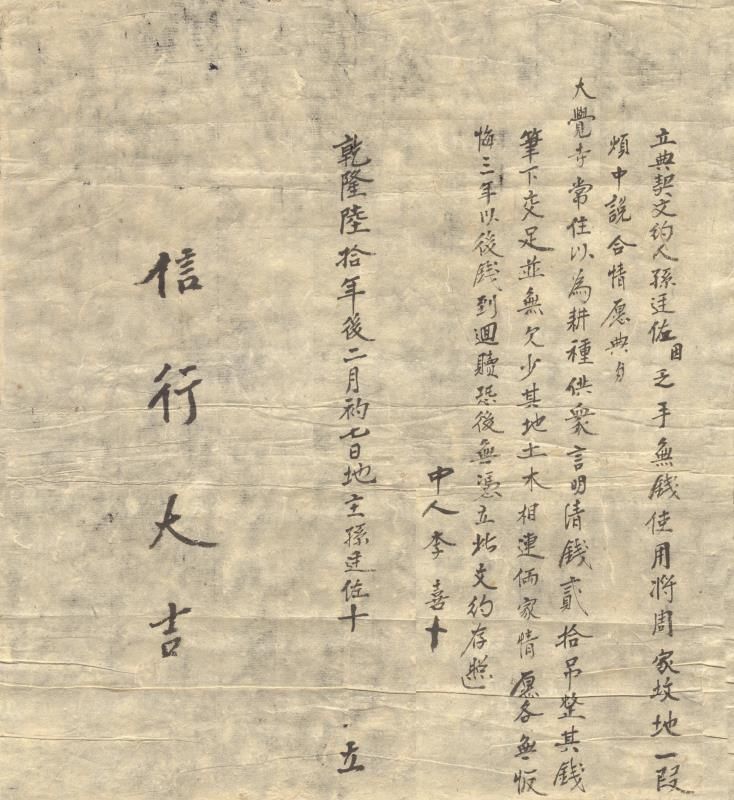 立典契文約人孫廷佐因乏手無錢使用将周家坟地一段
煩中説合情愿典与
大覺寺常住以為耕種供衆言明清錢貳拾吊整其錢
筆下交足並無欠少其地土木相連倆家情愿各無恢
悔三年以後錢到迴贖恐後無憑立此文約存照
中人李喜十
乾隆陸拾年後二月初七日地主孫廷佐十 立
信行大吉